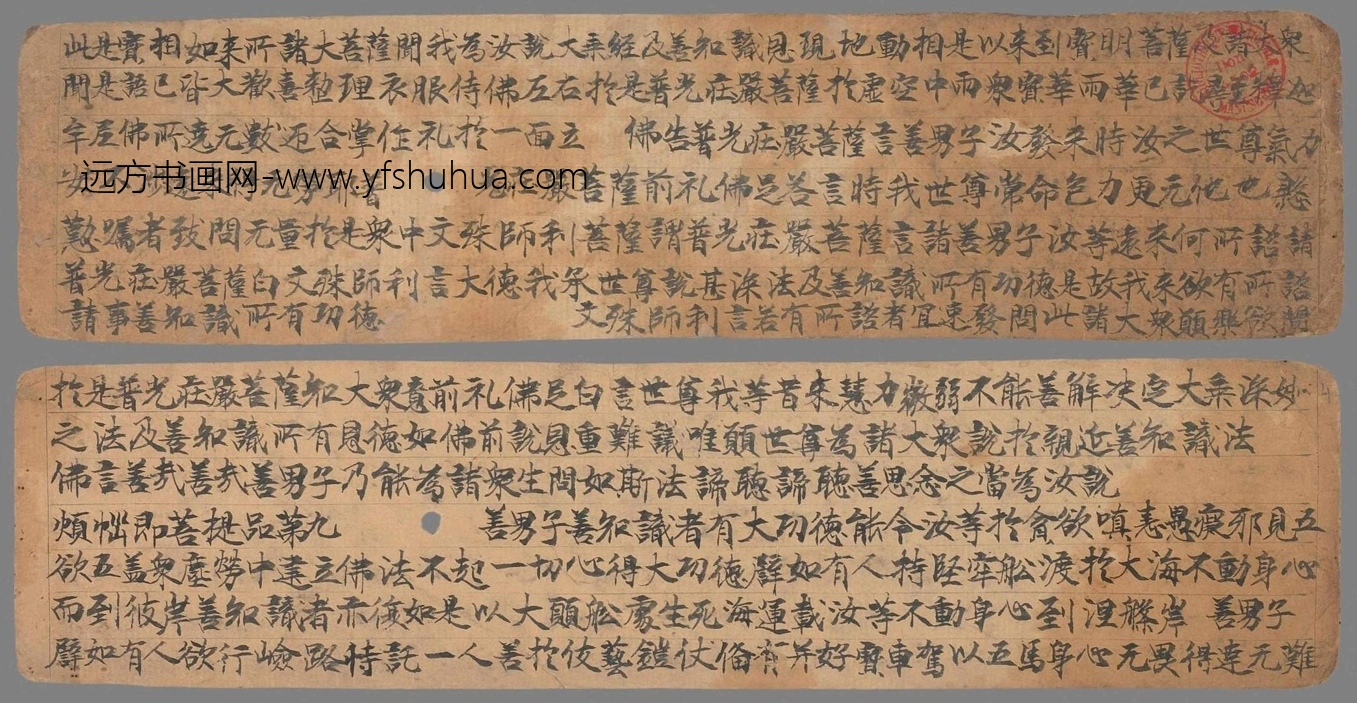 此是寶相如来所諸大菩薩聞我為汝說大乘経及善知識恩現地動相是以来到寶明菩薩諸大衆
聞是語已皆大歡喜整理衣服侍佛左右於是普光莊嚴菩薩於虚空中雨衆寶華雨華已訖尋
牟尼佛所遶无數迊合掌作礼於一面立 佛告普光莊嚴菩薩言善男子汝發来時汝之世尊氣力
远方书画网-www.yfshuhua.com
莊嚴菩薩前礼佛足答言時我世尊常命色力更无他也慇
懃嘱者致問无量於是衆中文殊師利菩薩謂普光莊嚴菩薩言諸善男子汝等遠来何所諮請
普光莊嚴菩薩白文殊師利言大德我承世尊說甚深法及善知識所有功德是故我来欲有所諮
請事善知識所有功德 文殊師利言若有所諮者宜速發問此諸大衆願樂欲聞
於是普光莊嚴菩薩知大衆意前礼佛足白言世尊我等昔来慧力微弱不能善解决定大乘深妙
之法及善知識所有恩德如佛前說恩重難議唯願世尊為諸大衆說於親近善知識法
佛言善㢤善㢤善男子乃能為諸衆生問如斯法諦聽諦聽善思念之當為汝說
煩惱即菩提品第九 善男子善知識者有大功德能令汝等於貪欲嗔恚愚癡邪見五
欲五盖衆塵勞中建立佛法不起一切心得大功德譬如有人持堅牢舩渡於大海不動身心
而到彼岸善知識者亦復如是以大願舩處生死海運載汝等不動身心到涅槃岸 善男子
譬如有人欲行嶮路時託一人善於伎藝鎧仗俻有并好寶車駕以五馬身心无畏得達无難